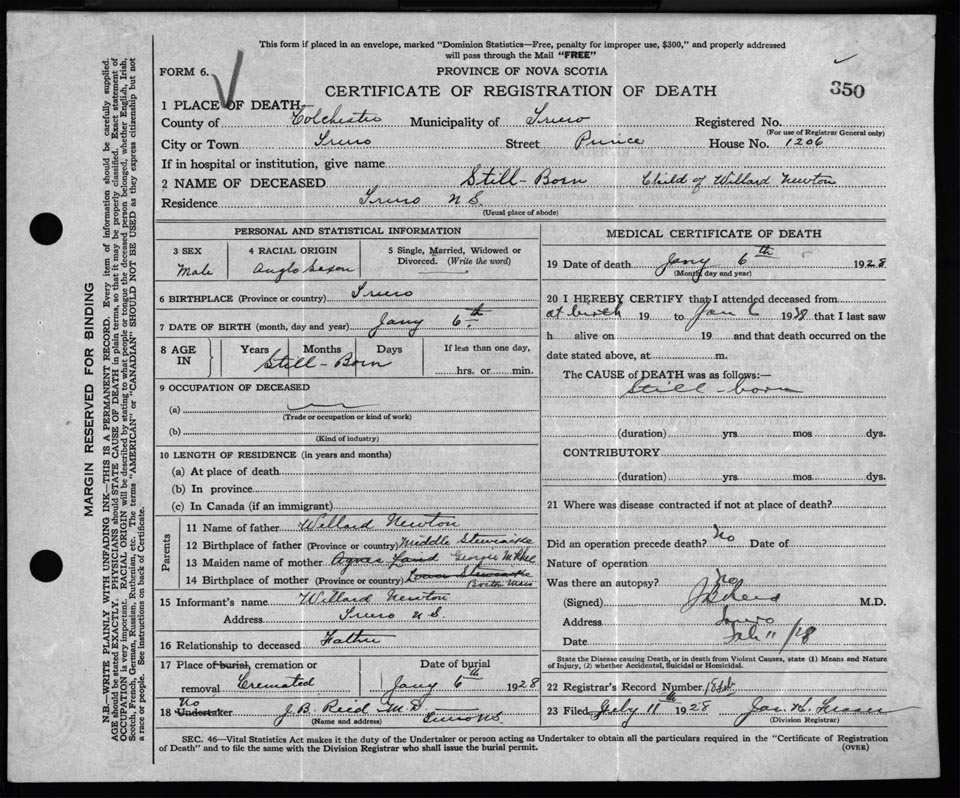 This form if placed in an envelope, marked "Dominion Statistics—Free, penalty for improper use, $300," and properly addressed
will pass through the Mail "FREE"
FORM 6.
PROVINCE OF NOVA SCOTIA
350
CERTIFICATE OF REGISTRATION OF DEATH
1 PLACE OF DEATH—
County of Colchester Municipality of Truro Registered No.
(For use of Registrar General only)
City or Town Truro Street Prince House No. 1206
If in hospital or institution, give name
2 NAME OF DECEASED Still-Born Child of Willard Newton
Residence Truro N S.
(Usual place of abode)
PERSONAL AND STATISTICAL INFORMATION
3 SEX 4 RACIAL ORIGIN 5 Single, Married, Widowed or
Divorced. (Write the word)
Male Anglo Saxon
6 BIRTHPLACE (Province or country) Truro
7 DATE OF BIRTH (month, day and year) Jany 6th
8 AGE IN Years Months Days If less than one day,
Still-Born hrs. or min.
9 OCCUPATION OF DECEASED
(a)
(Trade or occupation or kind of work)
(b)
(Kind of industry)
10 LENGTH OF RESIDENCE (in years and months)
(a) At place of death
(b) In province
(c) In Canada (if an immigrant)
Parents
11 Name of father Willard Newton
12 Birthplace of father (Province or country) Middle Stewiacke
13 Maiden name of mother Agnes
14 Birthplace of mother (Province or country) Lower Stewiacke
15 Informant's name Willard Newton
Address Truro N S.
16 Relationship to deceased Father
17 Place of burial, cremation or Date of burial
removal Cremated Jany 6th 1928
No
18 Undertaker J. B. Reid M.D.
(Name and address) Truro N S.
MEDICAL CERTIFICATE OF DEATH
19 Date of death Jany 6th 1928
(Month, day and year)
20 I HEREBY CERTIFY that I attended deceased from
at birth 19 to Jan 6 1928 that I last saw
h alive on 19 and that death occurred on the
date stated above, at m.
The CAUSE of DEATH was as follows:—
Still-born
(duration) yrs mos dys.
CONTRIBUTORY
(duration) yrs mos dys.
21 Where was disease contracted if not at place of death?
Did an operation precede death? No Date of
Nature of operation
Was there an autopsy? No
(Signed) J B Reid M.D.
Address Truro
Date 11/28
State the Disease causing Death, or in death from Violent Causes, state (1) Means and Nature
of Injury, (2) whether Accidental, Suicidal or Homicidal.
22 Registrar's Record Number
23 Filed July 11th 1928 Jas. H. Fraser
(Division Registrar)
SEC. 46—Vital Statistics Act makes it the duty of the Undertaker or person acting as Undertaker to obtain all the particulars required in the "Certificate of Registration
of Death" and to file the same with the Division Registrar who shall issue the burial permit.
(OVER)
MARGIN RESERVED FOR BINDING
N.B.—WRITE PLAINLY WITH UNFADING INK—THIS IS A PERMANENT RECORD. Every item of information should be carefully supplied.
AGE should be stated EXACTLY. PHYSICIANS should STATE CAUSE OF DEATH in plain terms, so that it may be properly classified. Exact statement of
OCCUPATION is very important. RACIAL ORIGIN will be described by stating to what people or tongue the deceased person belonged, whether English, Irish,
Scotch, French, German, Russian, Ruthenian, etc. The terms "AMERICAN" or "CANADIAN" SHOULD NOT BE USED as they express citizenship but not
a race or people. See instructions on back of Certificate.